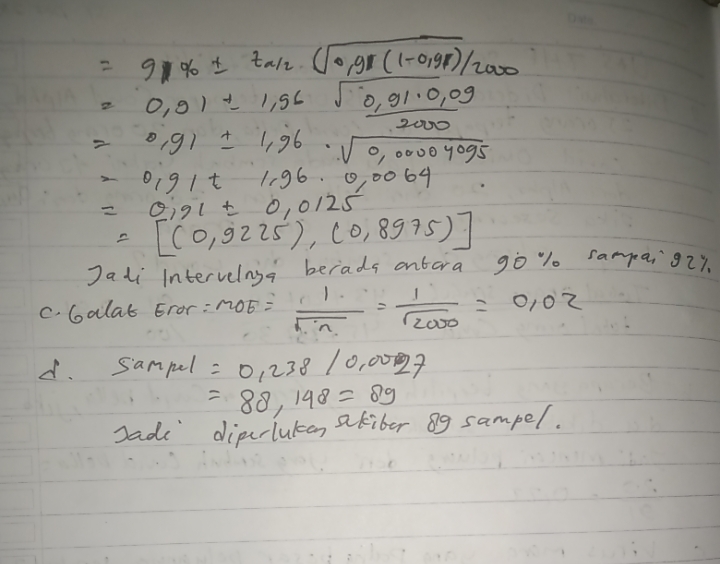 = 91% ± tα/2 (√0,91 (1-0,91)/2000
= 0,91 ± 1,96 √0,91.0,09/2000
= 0,91 ± 1,96 . √0,00004095
= 0,91 ± 1,96 . 0,0064
= 0,91 ± 0,0125
= [(0,9225), (0,8975)]
Jadi Intervelnya berada antara 90% sampai 92%
c. Galat Eror = MOE = 1/√n = 1/√2000 = 0,02
d. Sampel = 0,238 / 0,0027
= 88,148 = 89
Jadi diperlukan sekitar 89 sampel.